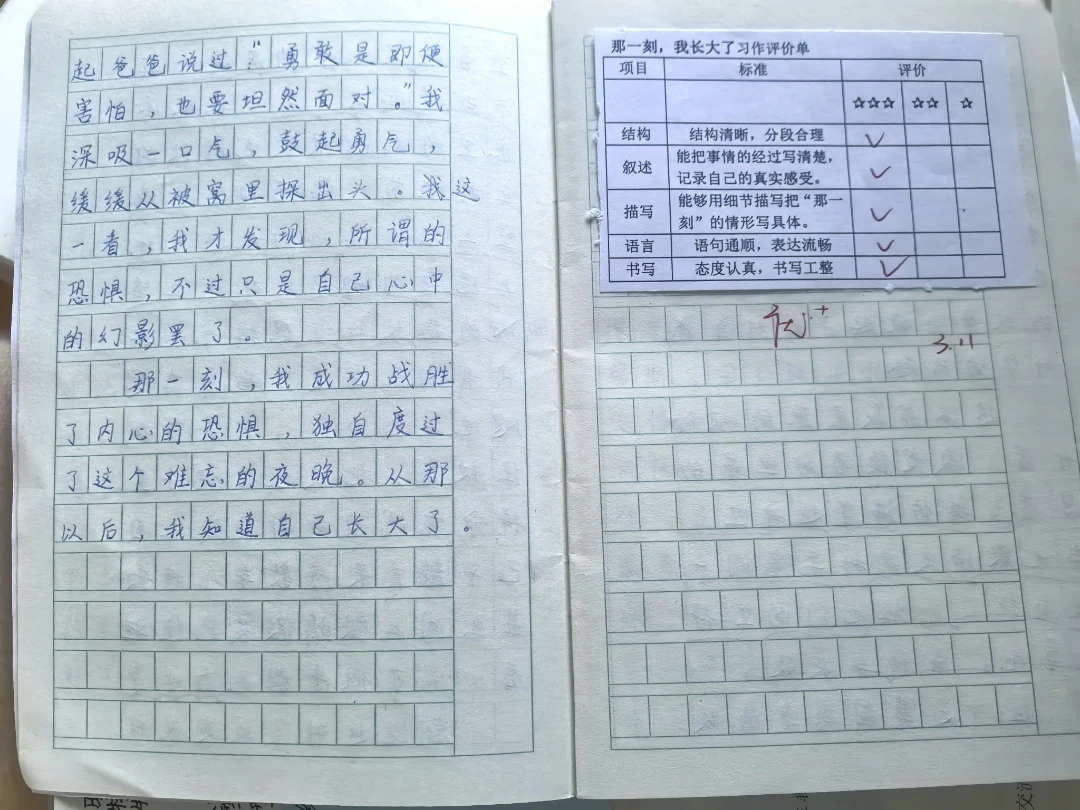 起爸爸说过:“勇敢是即便
害怕,也要坦然面对。”我
深吸一口气,鼓起勇气,
缓缓从被窝里探出头。我这
一看,我才发现,所谓的
恐惧,不过只是自己心中
的幻影罢了。
那一刻,我成功战胜
了内心的恐惧,独自度过
了这个难忘的夜晚。从那
以后,我知道自己长大了。
那一刻,我长大了习作评价单
项目 标准 评价
☆☆☆ ☆☆ ☆
结构 结构清晰,分段合理 ✓
叙述 能把事情的经过写清楚,
记录自己的真实感受。 ✓
描写 能够用细节描写把“那一
刻”的情形写具体。 ✓
语言 语句通顺,表达流畅 ✓
书写 态度认真,书写工整 ✓
优+
3.11